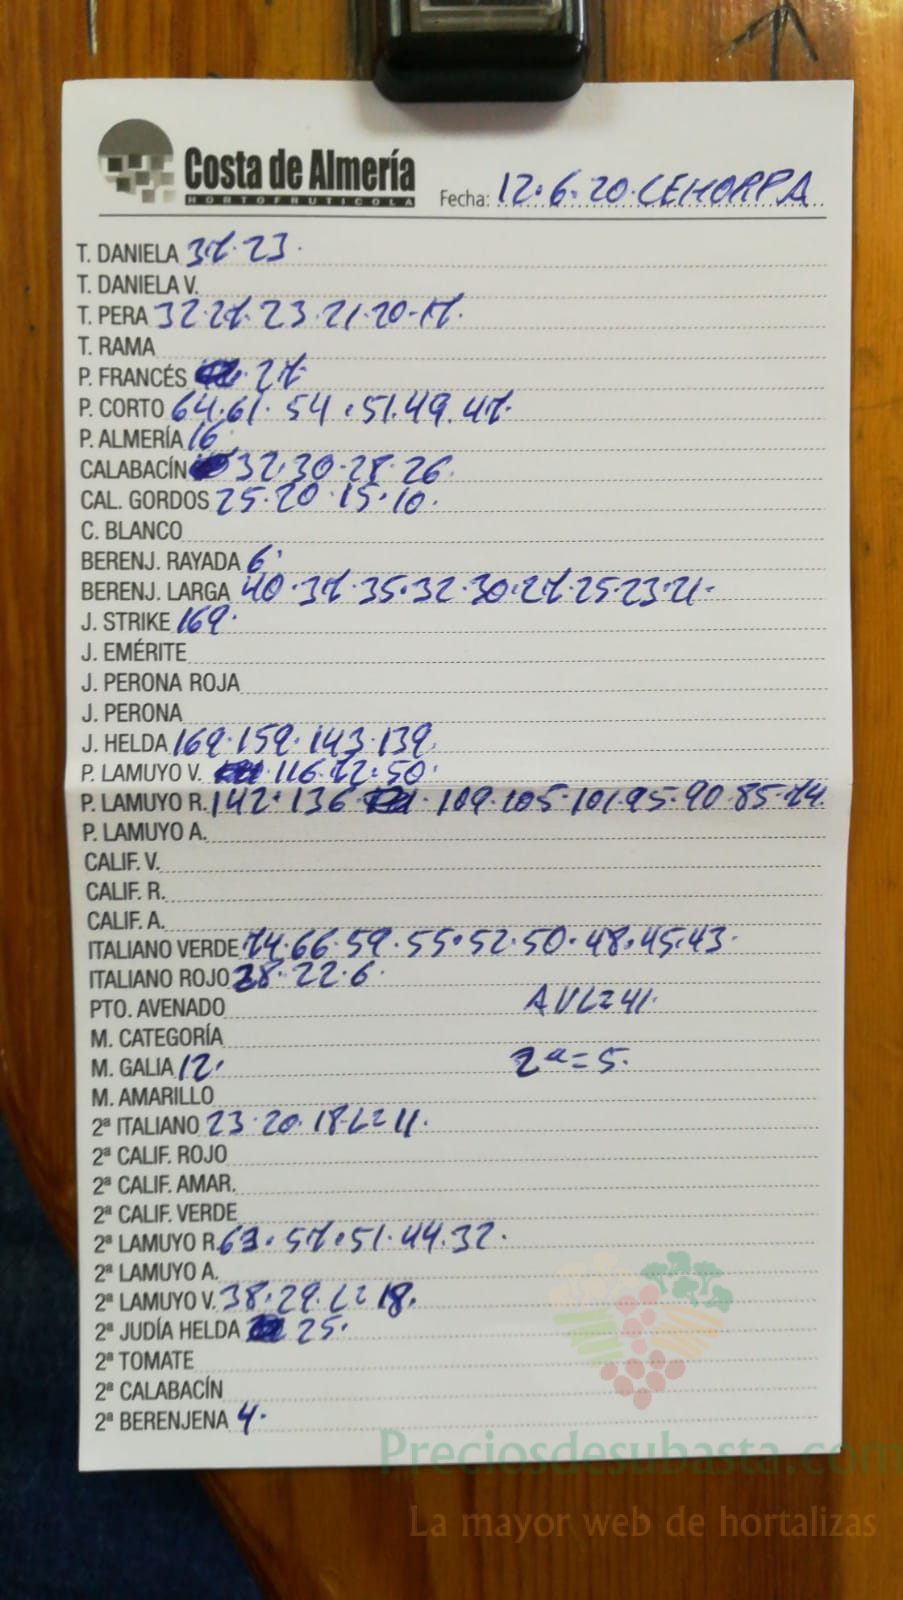 Costa de Almería
HORTOFRUTICOLA
Fecha: 12.6.20. CEHORPA
T. DANIELA 37.23.
T. DANIELA V.
T. PERA 32.27.23.21.20.17.
T. RAMA
P. FRANCÉS 27
P. CORTO 64.61.54.51.49.47.
P. ALMERÍA 16
CALABACÍN 32.30.28.26.
CAL. GORDOS 25.20.15.10.
C. BLANCO
BERENJ. RAYADA 6.
BERENJ. LARGA 40.37.35.32.30.27.25.23.21.
J. STRIKE 169.
J. EMÉRITE
J. PERONA ROJA
J. PERONA
J. HELDA 169.159.143.139.
P. LAMUYO V. 116.72.50.
P. LAMUYO R. 142.136. .109.105.101.95.90.85.74.
P. LAMUYO A.
CALIF. V.
CALIF. R.
CALIF. A.
ITALIANO VERDE 74.66.59.55.52.50.48.45.43.
ITALIANO ROJO 38.22.6.
PTO. AVENADO AVL=41.
M. CATEGORÍA
M. GALIA 12. 2ª=5.
M. AMARILLO
2ª ITALIANO 23.20.18.L=11.
2ª CALIF. ROJO
2ª CALIF. AMAR.
2ª CALIF. VERDE
2ª LAMUYO R. 63.57.51.44.32.
2ª LAMUYO A.
2ª LAMUYO V. 38.29.L=18.
2ª JUDÍA HELDA 25.
2ª TOMATE
2ª CALABACÍN
2ª BERENJENA 4.
Preciosdesubasta.com
La mayor web de hortalizas